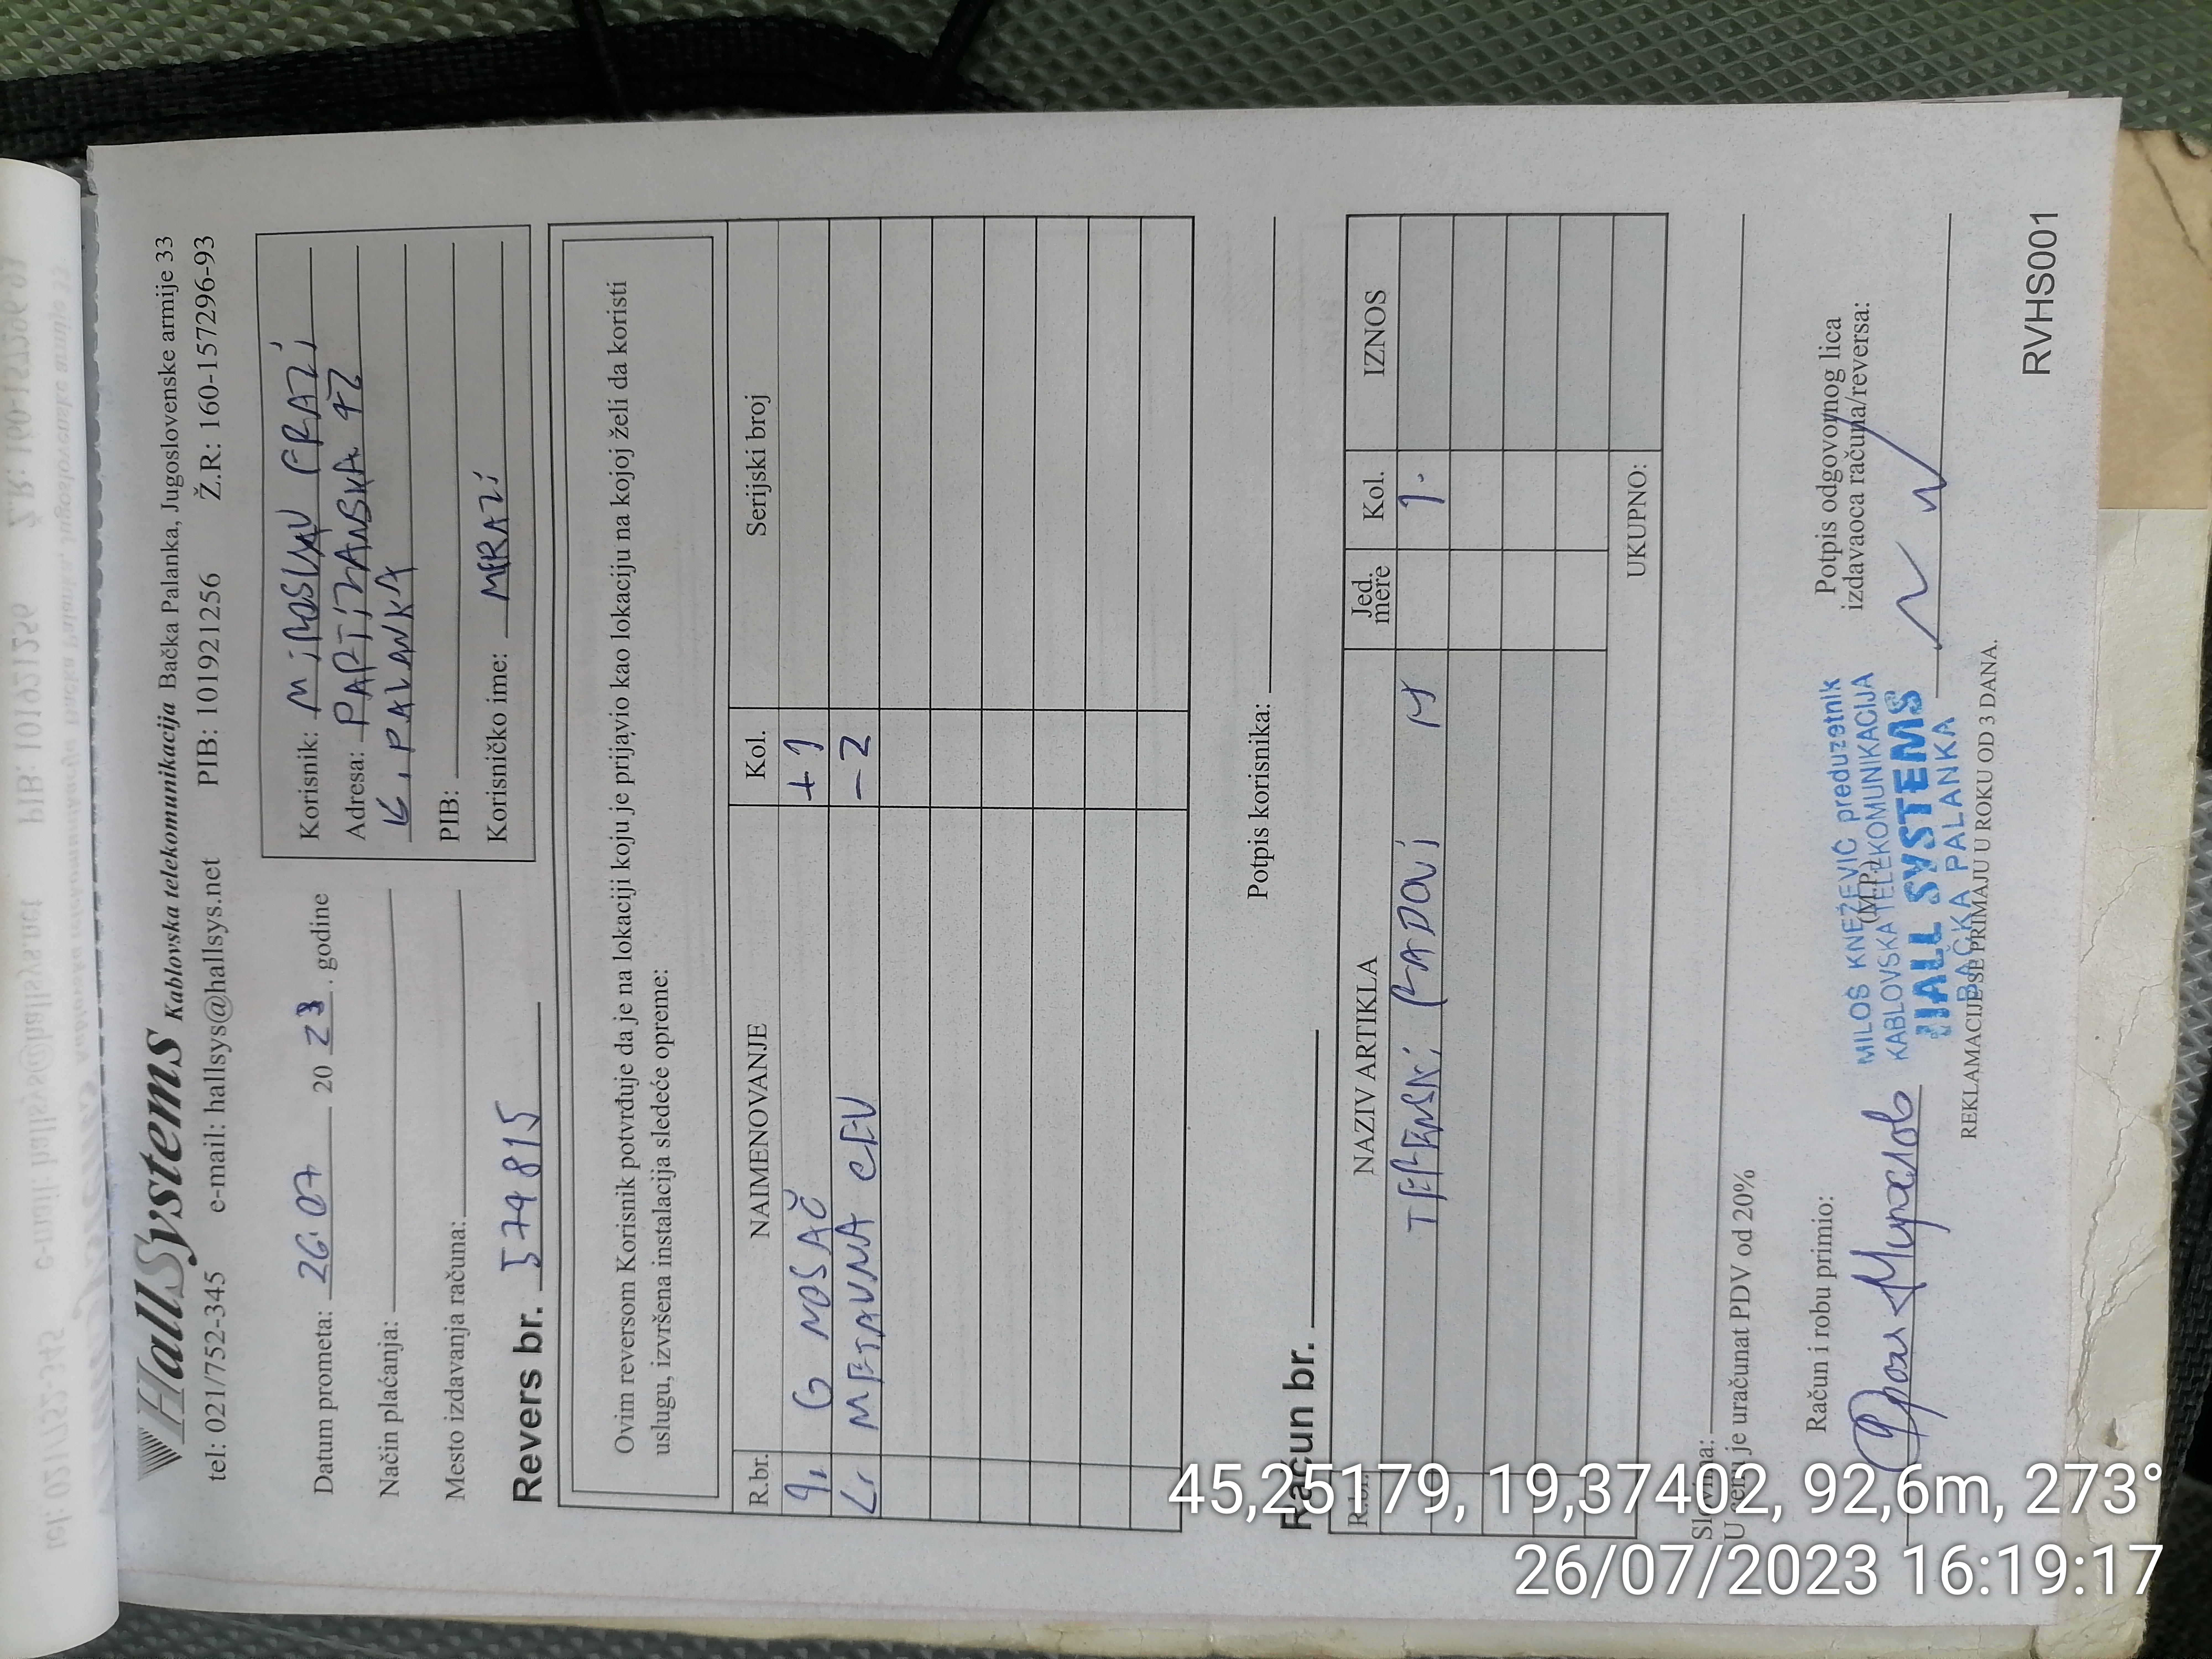 HallSystems Kablovska telekomunikacija Bačka Palanka, Jugoslovenske armije 33
tel: 021/752-345 e-mail: hallsys@hallsys.net PIB: 101921256 Ž.R.: 160-157296-93
Datum prometa: 26.07 20 23. godine
Način plaćanja:
Mesto izdavanja računa:
Korisnik: MIROSLAV FRAZI
Adresa: PARTIZANSKA 42
PALANKA
PIB:
Korisničko ime: MFRAZI
Revers br. 574815
Ovim reversom Korisnik potvrđuje da je na lokaciji koju je prijavio kao lokaciju na kojoj želi da koristi
uslugu, izvršena instalacija sledeće opreme:
R.br. NAIMENOVANJE Kol. Serijski broj
1. G NOSAČ +1
2. METALNA CEV -2
Potpis korisnika:
Račun br.
R.br. NAZIV ARTIKLA Jed. mere Kol. IZNOS
TERENSKI RADOVI H 1.
UKUPNO:
Slovima:
U cenu je uračunat PDV od 20%
Račun i robu primio:
(M.P.)
Potpis odgovornog lica
izdavaoca računa/reversa:
Фрази Мирослав
MILOŠ KNEŽEVIĆ preduzetnik
KABLOVSKA TELEKOMUNIKACIJA
HALL SYSTEMS
BAČKA PALANKA
REKLAMACIJE SE PRIMAJU U ROKU OD 3 DANA.
RVHS001
45,25179, 19,37402, 92,6m, 273°
26/07/2023 16:19:17